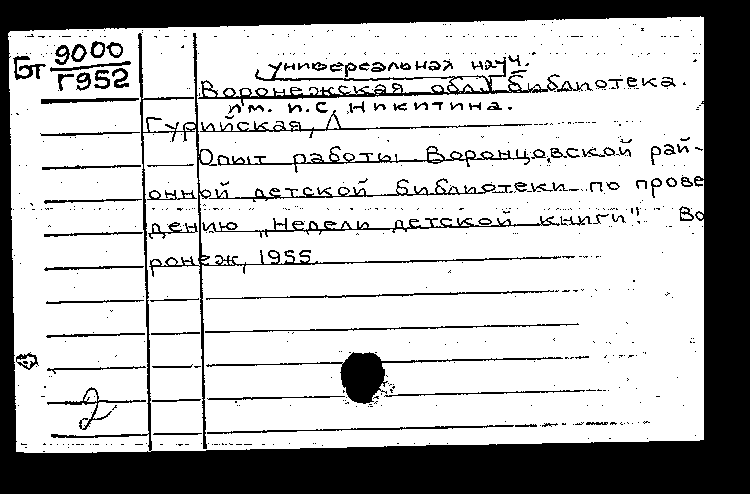 Бт 9000
Г952
универсальная науч.
Воронежская обл. библиотека.
им. И.С. Никитина.
Гурийская, Л
Опыт работы Воронцовской рай-
онной детской библиотеки по прове
дению „Недели детской книги"! Во
ронеж, 1955.
2